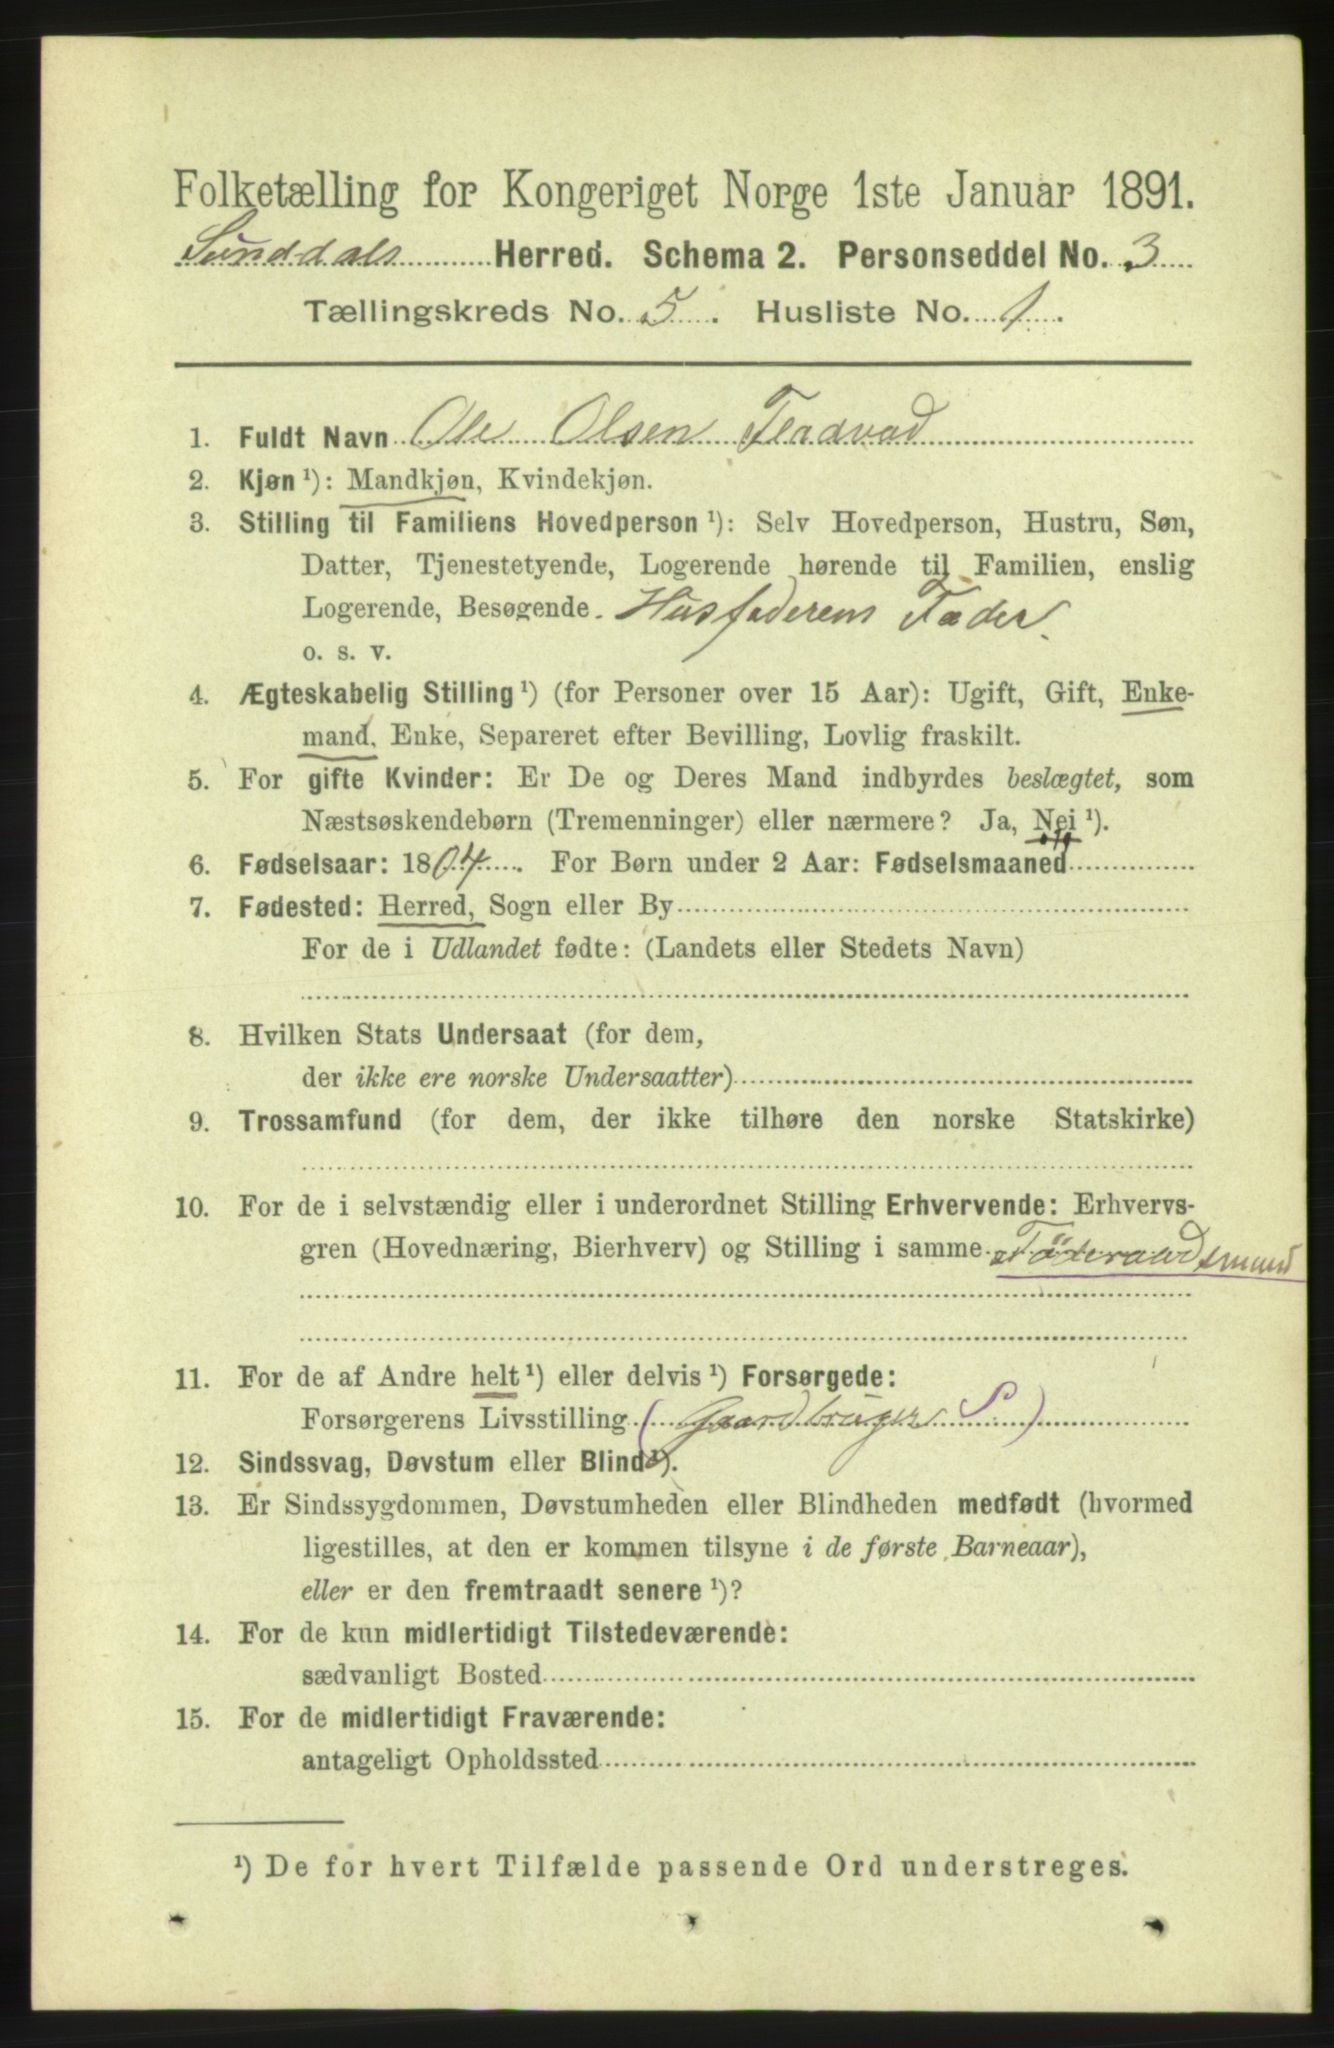 Folketælling for Kongeriget Norge 1ste Januar 1891.
Sunddals Herred. Schema 2. Personseddel No. 3
Tællingskreds No. 5. Husliste No. 1.
1. Fuldt Navn Ole Olsen
2. Kjøn ¹): Mandkjøn, Kvindekjøn.
3. Stilling til Familiens Hovedperson ¹): Selv Hovedperson, Hustru, Søn,
Datter, Tjenestetyende, Logerende hørende til Familien, enslig
Logerende, Besøgende. Husfaderens Fader.
o. s. v.
4. Ægteskabelig Stilling ¹) (for Personer over 15 Aar): Ugift, Gift, Enke-
mand, Enke, Separeret efter Bevilling, Lovlig fraskilt.
5. For gifte Kvinder: Er De og Deres Mand indbyrdes beslægtet, som
Næstsøskendebørn (Tremenninger) eller nærmere? Ja, Nei ¹).
6. Fødselsaar: 1804. For Børn under 2 Aar: Fødselsmaaned
7. Fødested: Herred, Sogn eller By
For de i Udlandet fødte: (Landets eller Stedets Navn)
8. Hvilken Stats Undersaat (for dem,
der ikke ere norske Undersaatter)
9. Trossamfund (for dem, der ikke tilhøre den norske Statskirke)
10. For de i selvstændig eller i underordnet Stilling Erhvervende: Erhvervs-
gren (Hovednæring, Bierhverv) og Stilling i samme. Föderaadsmand
11. For de af Andre helt ¹) eller delvis ¹) Forsørgede:
Forsørgerens Livsstilling (Gaardbruger S)
12. Sindssvag, Døvstum eller Blind ¹).
13. Er Sindssygdommen, Døvstumheden eller Blindheden medfødt (hvormed
ligestilles, at den er kommen tilsyne i de første Barneaar),
eller er den fremtraadt senere ¹)?
14. For de kun midlertidigt Tilstedeværende:
sædvanligt Bosted
15. For de midlertidigt Fraværende:
antageligt Opholdssted
¹) De for hvert Tilfælde passende Ord understreges.